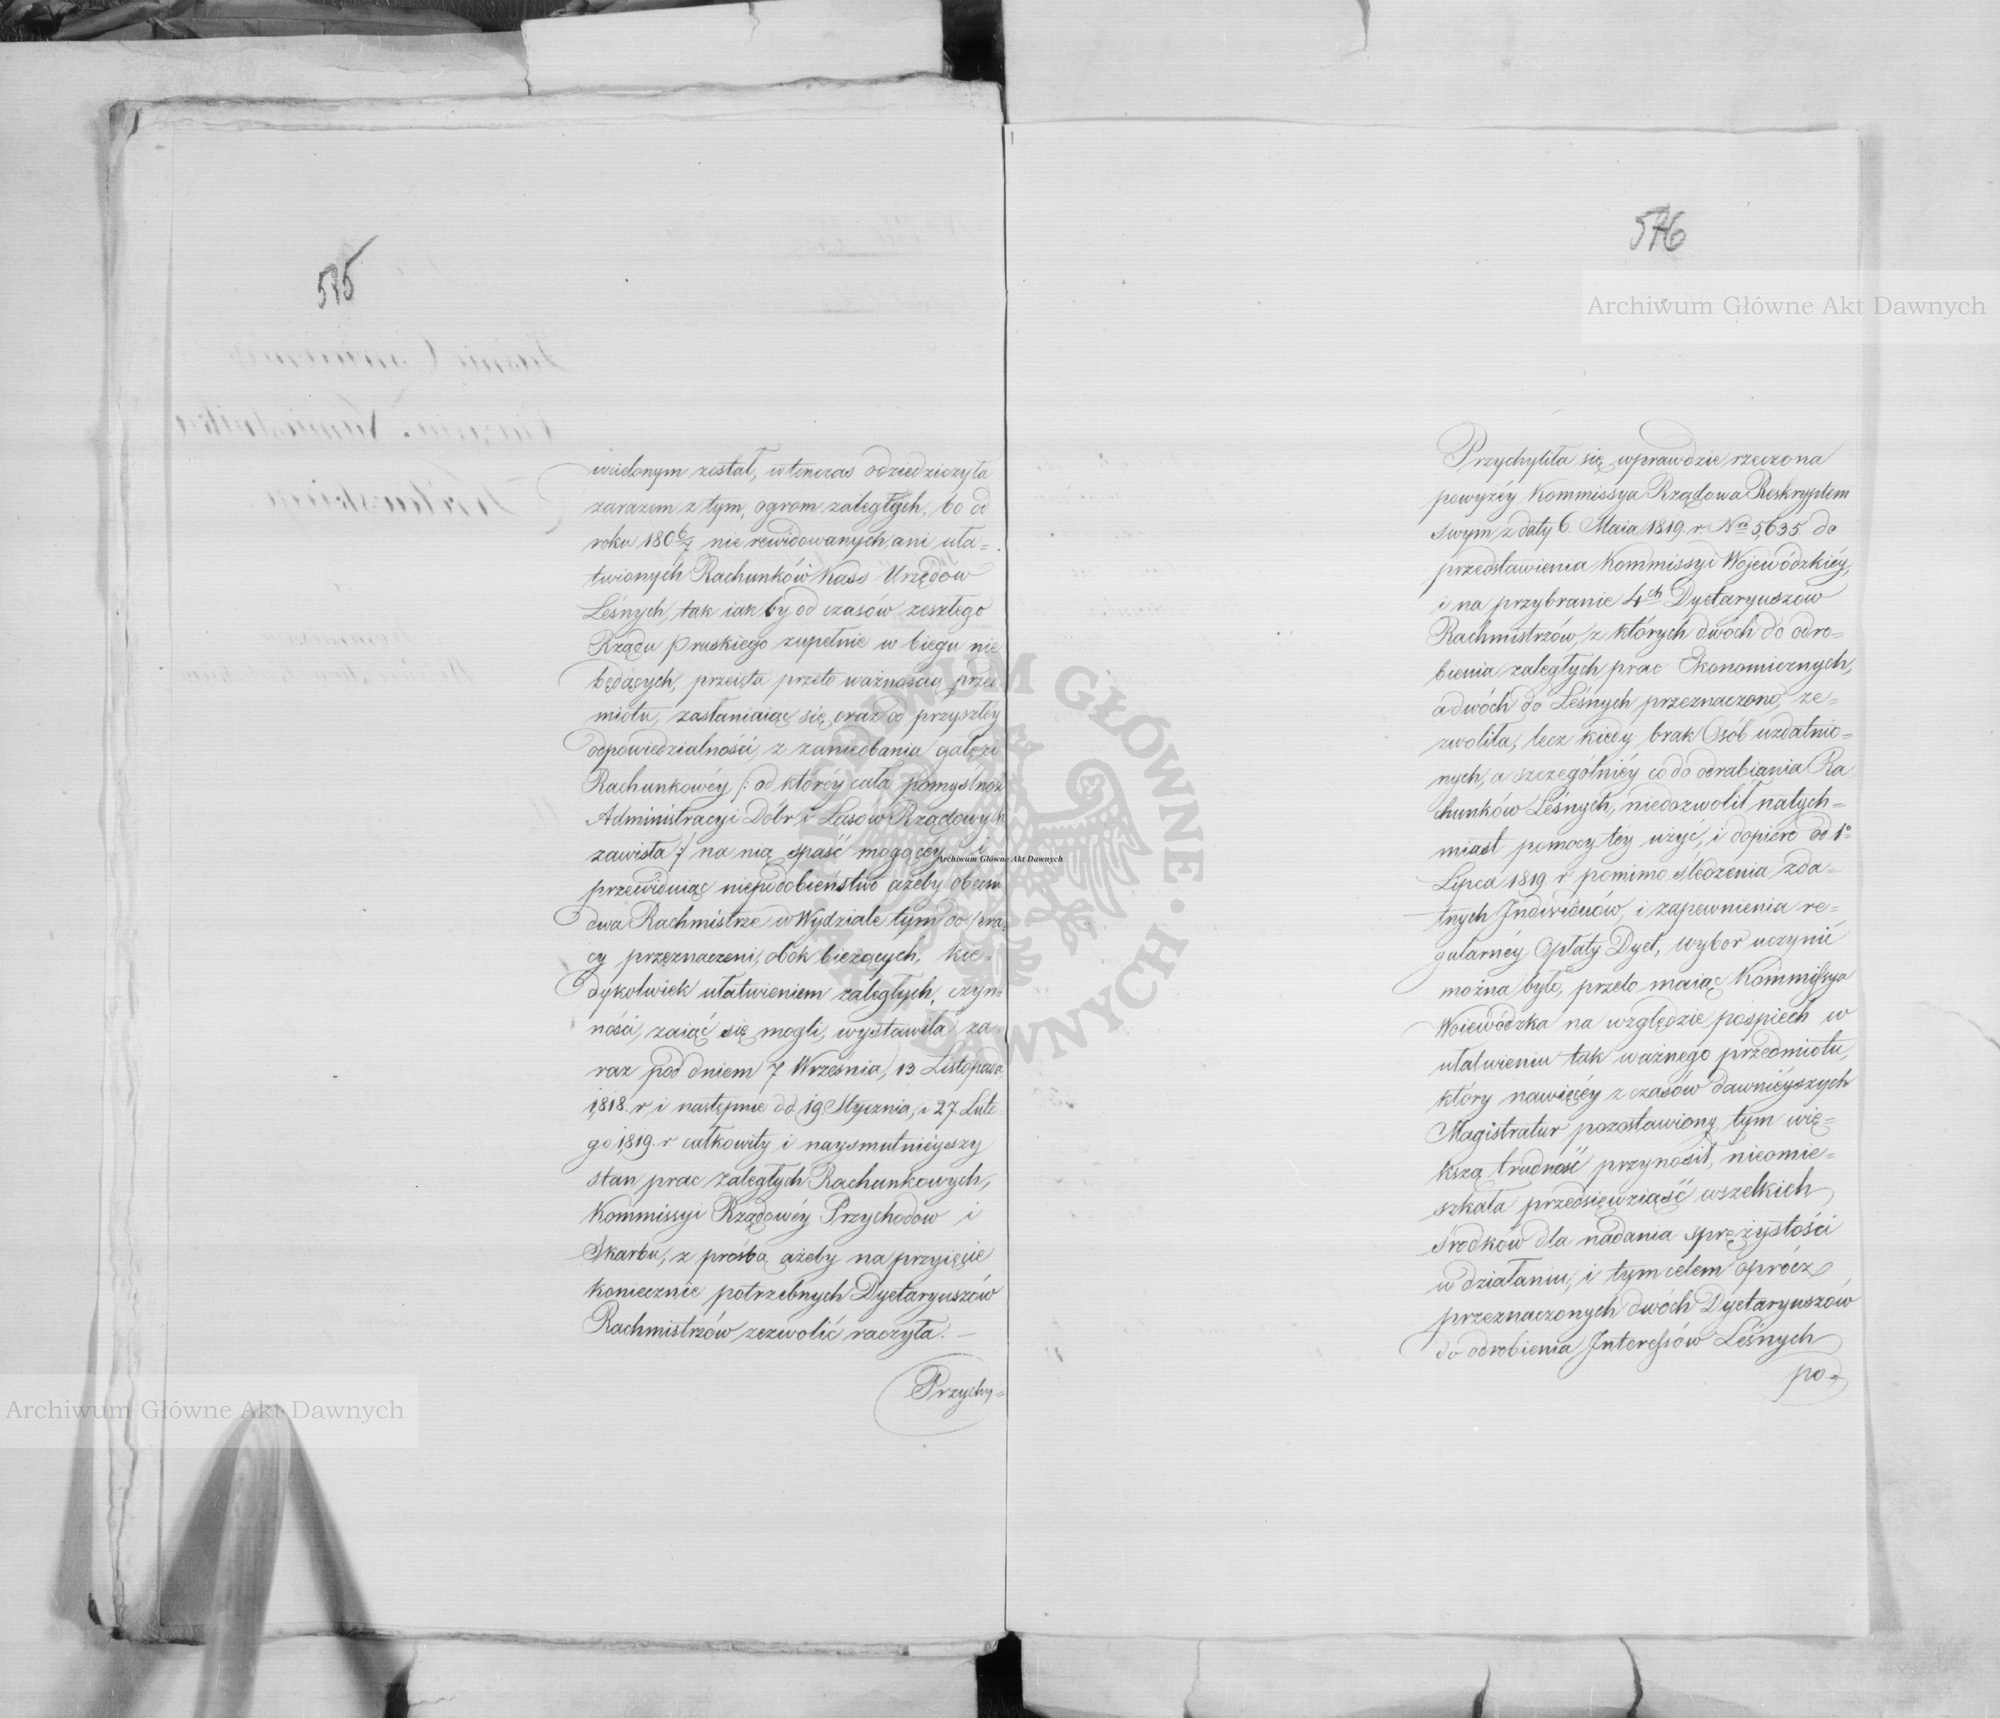 515
wcielonym został, wtenczas odziedziczyła
zarazem z tym, ogrom zaległych, bo od
roku 180 6/7 nie rewidowanych, ani uła=
twionych Rachunków Kass Urzędów
Leśnych, tak iak by od czasów zeszłego
Rządu pruskiego zupełnie w biegu nie
będących, przeięta przeto ważnością przed
miotu, zasłaniaiąc się oraz od przyszłéy
odpowiedzialności, z zaniedbania gałęzi
Rachunkowéy /: od któréy cała pomyślność
Administracyi Dóbr i Lasow Rządowych
zawisła :/ na nią spaść mogącéy i
przewiduiąc niepodobieństwo ażeby obecni
dwa Rachmistrze w Wydziale tym do pra=
cy przeznaczeni, obok bieżących, kie=
dykolwiek ułatwieniem zaległych, czyn=
ności, zaiąć się mogli, wystawiła za=
raz pod dniem 7 Września, 13 Listopada
1818. r, i następnie dd 19 Stycznia, i 27 Lute=
go 1819. r całkowity i naysmutnieyszy
stan prac zaległych Rachunkowych,
Kommissyi Rządowéy Przychodów i
Skarbu, z prośbą ażeby na przyięcie
koniecznie potrzebnych Dyetaryuszów
Rachmistrzów zezwolić raczyła. —
Przychy=
516
Przychyliła się wprawdzie rzeczona
powyżéy Kommissya Rządowa Reskryptem
swym z daty 6. Maia 1819. r. Nro 5,635. do
przedstawienia Kommissyi Wojewódzkiéy,
i na przybranie 4ch Dyetaryuszów
Rachmistrzów, z których dwoch do odro=
bienia zaległych prac Ekonomicznych,
a dwóch do Leśnych przeznaczono, ze=
zwoliła, lecz kiedy brak Osób uzdatnio=
nych, a szczególniéy co do odrabiania Ra=
chunków Leśnych, niedozwolił natych=
miast pomocy téy użyć, i dopiero od 1o
Lipca 1819. r pomimo śledzenia zda=
tnych Indwiduów, i zapewnienia re=
gularnéy Opłaty Dyet, wybor uczynić
można było, przeto maiąc Kommissya
Woiewódzka na względzie pospiech w
ułatwieniu tak ważnego przedmiotu,
który nawięcéy z czasów dawniéyszych
Magistratur pozostawiony, tym wię=
kszą trudność przynosił, nieomie=
szkała przedsięwziąść wszelkich
srodków dla nadania sprężystości
w działaniu, i tym celem oprócz
przeznaczonych dwóch Dyetaryuszów
do odrobienia Interessów Leśnych
po=
Archiwum Główne Akt Dawnych
Archiwum Główne Akt Dawnych
Archiwum Główne Akt Dawnych